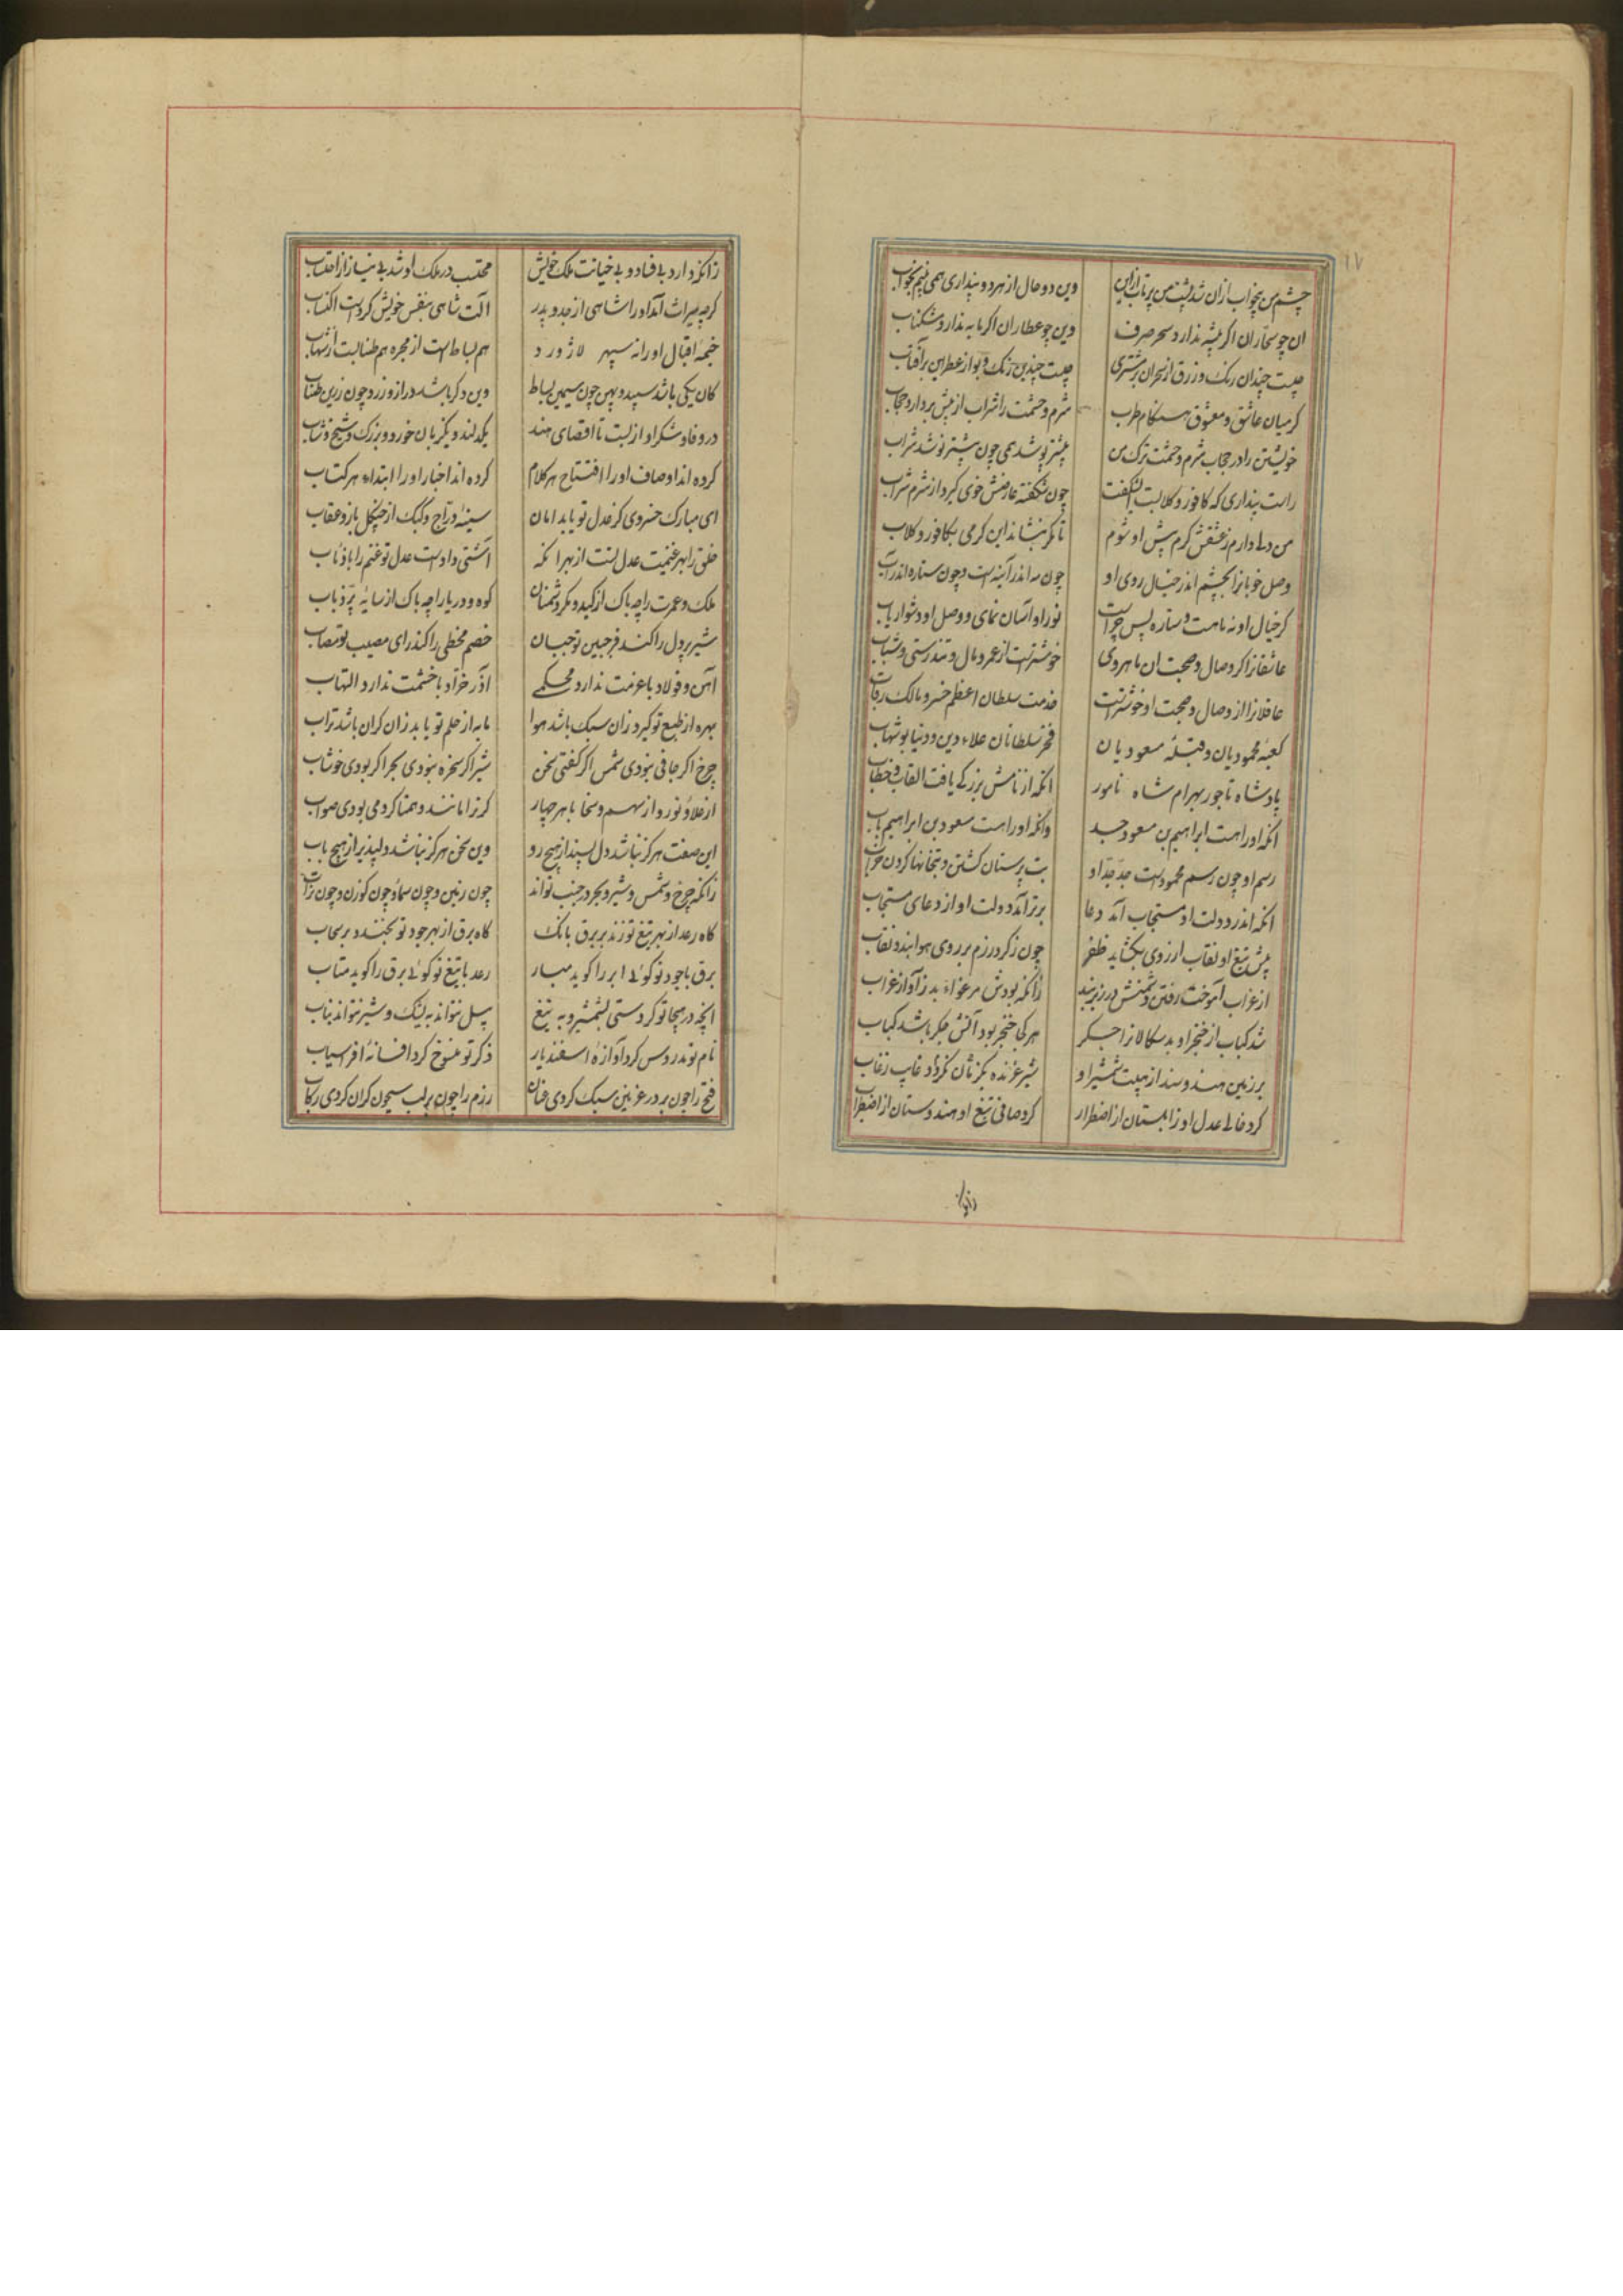 ۱۷
چشم من بیخواب ازان شد پشت من پرتاب ازین وین دو حال از هر دو پنداری همی بینم بخواب
ان چو سحاران اگر پیشه ندارد سحر صرف وین چو عطاران اگر مایه ندارد مشکناب
چیست چندان رنک و زرق از سحر ان بر مشتری چیست چندین رنک و بو از عطر این بر آفتاب
کر میان عاشق و معشوق هنکام طرب شرم و حشمت را شراب از پیش بردارد حجاب
خویشتن را در حجاب شرم و حشمت ترک من بیشتر پوشد همی چون بیشتر نوشد شراب
راست پنداری که کافور و کلابست ای شکفت چون شکفته عارضش خوی کیرد از شرم شراب
من دلی دارم ز عشقش کرم پیش او شوم تا مکر بنشاند این کرمی بکافور و کلاب
وصل خوبانرا بچشم اندر خیال روی او چون مه اندر آینه است و چون ستاره اندر آب
کر خیال او نه ماهست و ستاره پس چراست نور او آسان نمای و وصل او دشوار یاب
عاشقانرا کر وصال و صحبت ان ماهروی خوشترست از عمر و مال و تندرستی و شباب
عاقلانرا از وصال و صحبت او خوشترست خدمت سلطان اعظم خسرو مالک رقاب
کعبهٔ محمودیان و قبلهٔ مسعودیان فخر سلطانان علاء دین و دنیا بوشهاب
پادشاه تاجور بهرام شاه نامور انکه از نامش بزرکی یافت القاب و خطاب
انکه او را هست ابراهیم بن مسعود جد وانکه او را هست مسعود بن ابراهیم باب
رسم او چون رسم محمودست جد جد او بت پرستان کشتن و بتخانها کردن خراب
انکه اندر دولت او مستجاب آمد دعا برتر آمد دولت او از دعای مستجاب
پیش تیغ او نقاب از روی بکشاید ظفر چون ز کرد رزم بر روی هوا بندد نقاب
از غراب آموخت رفتن دشمنش در زیر بند زانکه بودش مرغوا به زآواز غراب
شد کباب از خنجر او بدسکالانرا جکر هر کجا خنجر بود آتش جکر باشد کباب
بر زمین هند و سند از هیبت شمشیر او شیر غرنده بکرد ان نکردد غایب ز غاب
کرد خالی عدل او زابلستان از اضطرار کرد صافی تیغ او هندوستان از اضطراب
زانکه
زانکه دارد بی فساد و بی خیانت ملک خویش محتسب در ملک او شد بی نیاز از احتساب
کرچه میراث آمد او را شاهی از جد و پدر آلت شاهی بنفس خویش کردست اکتساب
خیمهٔ اقبال او را نه سپهر لاژورد هم بساط است از مجره هم طنابست از شهاب
کان یکی باشد سپید و پهن چون سیمین بساط وین دکر باشد دراز و زرد چون زرین طناب
در وفا و شکر او از بست تا اقصای هند یکدلند و یکزبان خورد و بزرک و شیخ و شاب
کرده اند اوصاف او را افتتاح هر کلام کرده اند اخبار او را ابتداء هر کتاب
ای مبارک خسروی کز عدل تو یابد امان سینهٔ دراج و کبک از چنکل باز و عقاب
خلق را بهر غنیمت عدل تست از بهر انکه آشتی دادست عدل تو غنم را با ذئاب
ملک و عمرت را چه باک از کید و مکر دشمنان کوه و دریا را چه باک از سایهٔ پر ذباب
شیر پر دل را کند فر جبین تو جبان خصم مخطی را کند رای مصیب تو مصاب
آهن و فولاد با عزمت ندارد محکمی آذر خرداد با خشمت ندارد التهاب
بهره از طبع تو کیرد زان سبک باشد هوا مایه از حلم تو یابد زان کران باشد تراب
چرخ اکر جافی نبودی شمس اکر کفتی سخن شیر اکر سخره نبودی بحر اکر بودی خوشاب
از علا و نور و از سهم و سخا با هر چهار کر ترا مانند و همتا کردمی بودی صواب
این صفت هرکز نباشد دل پسند از هیچ رو وین سخن هرکز نباشد دلپذیر از هیچ باب
زانکه چرخ و شمس و شیر و بحر در جنب تواند چون زمین و چون سها و چون کوزن و چون سراب
کاه رعد از بهر تیغ تو زند بر برق بانک کاه برق از بهر جود تو بخندد بر سحاب
برق با جود تو کوئی ابر را کوید مبار رعد با تیغ تو کوئی برق را کوید متاب
انچه در هیجا تو کردستی بشمشیر و به تیغ پیل نتواند به نیشک و شیر نتواند بناب
نام تو مدروس کرد آوازهٔ اسفندیار ذکر تو منسوخ کرد افسانهٔ افراسیاب
فتح را چون بر در غزنین سبک کردی عنان رزم را چون بر لب سیحون کران کردی رکاب